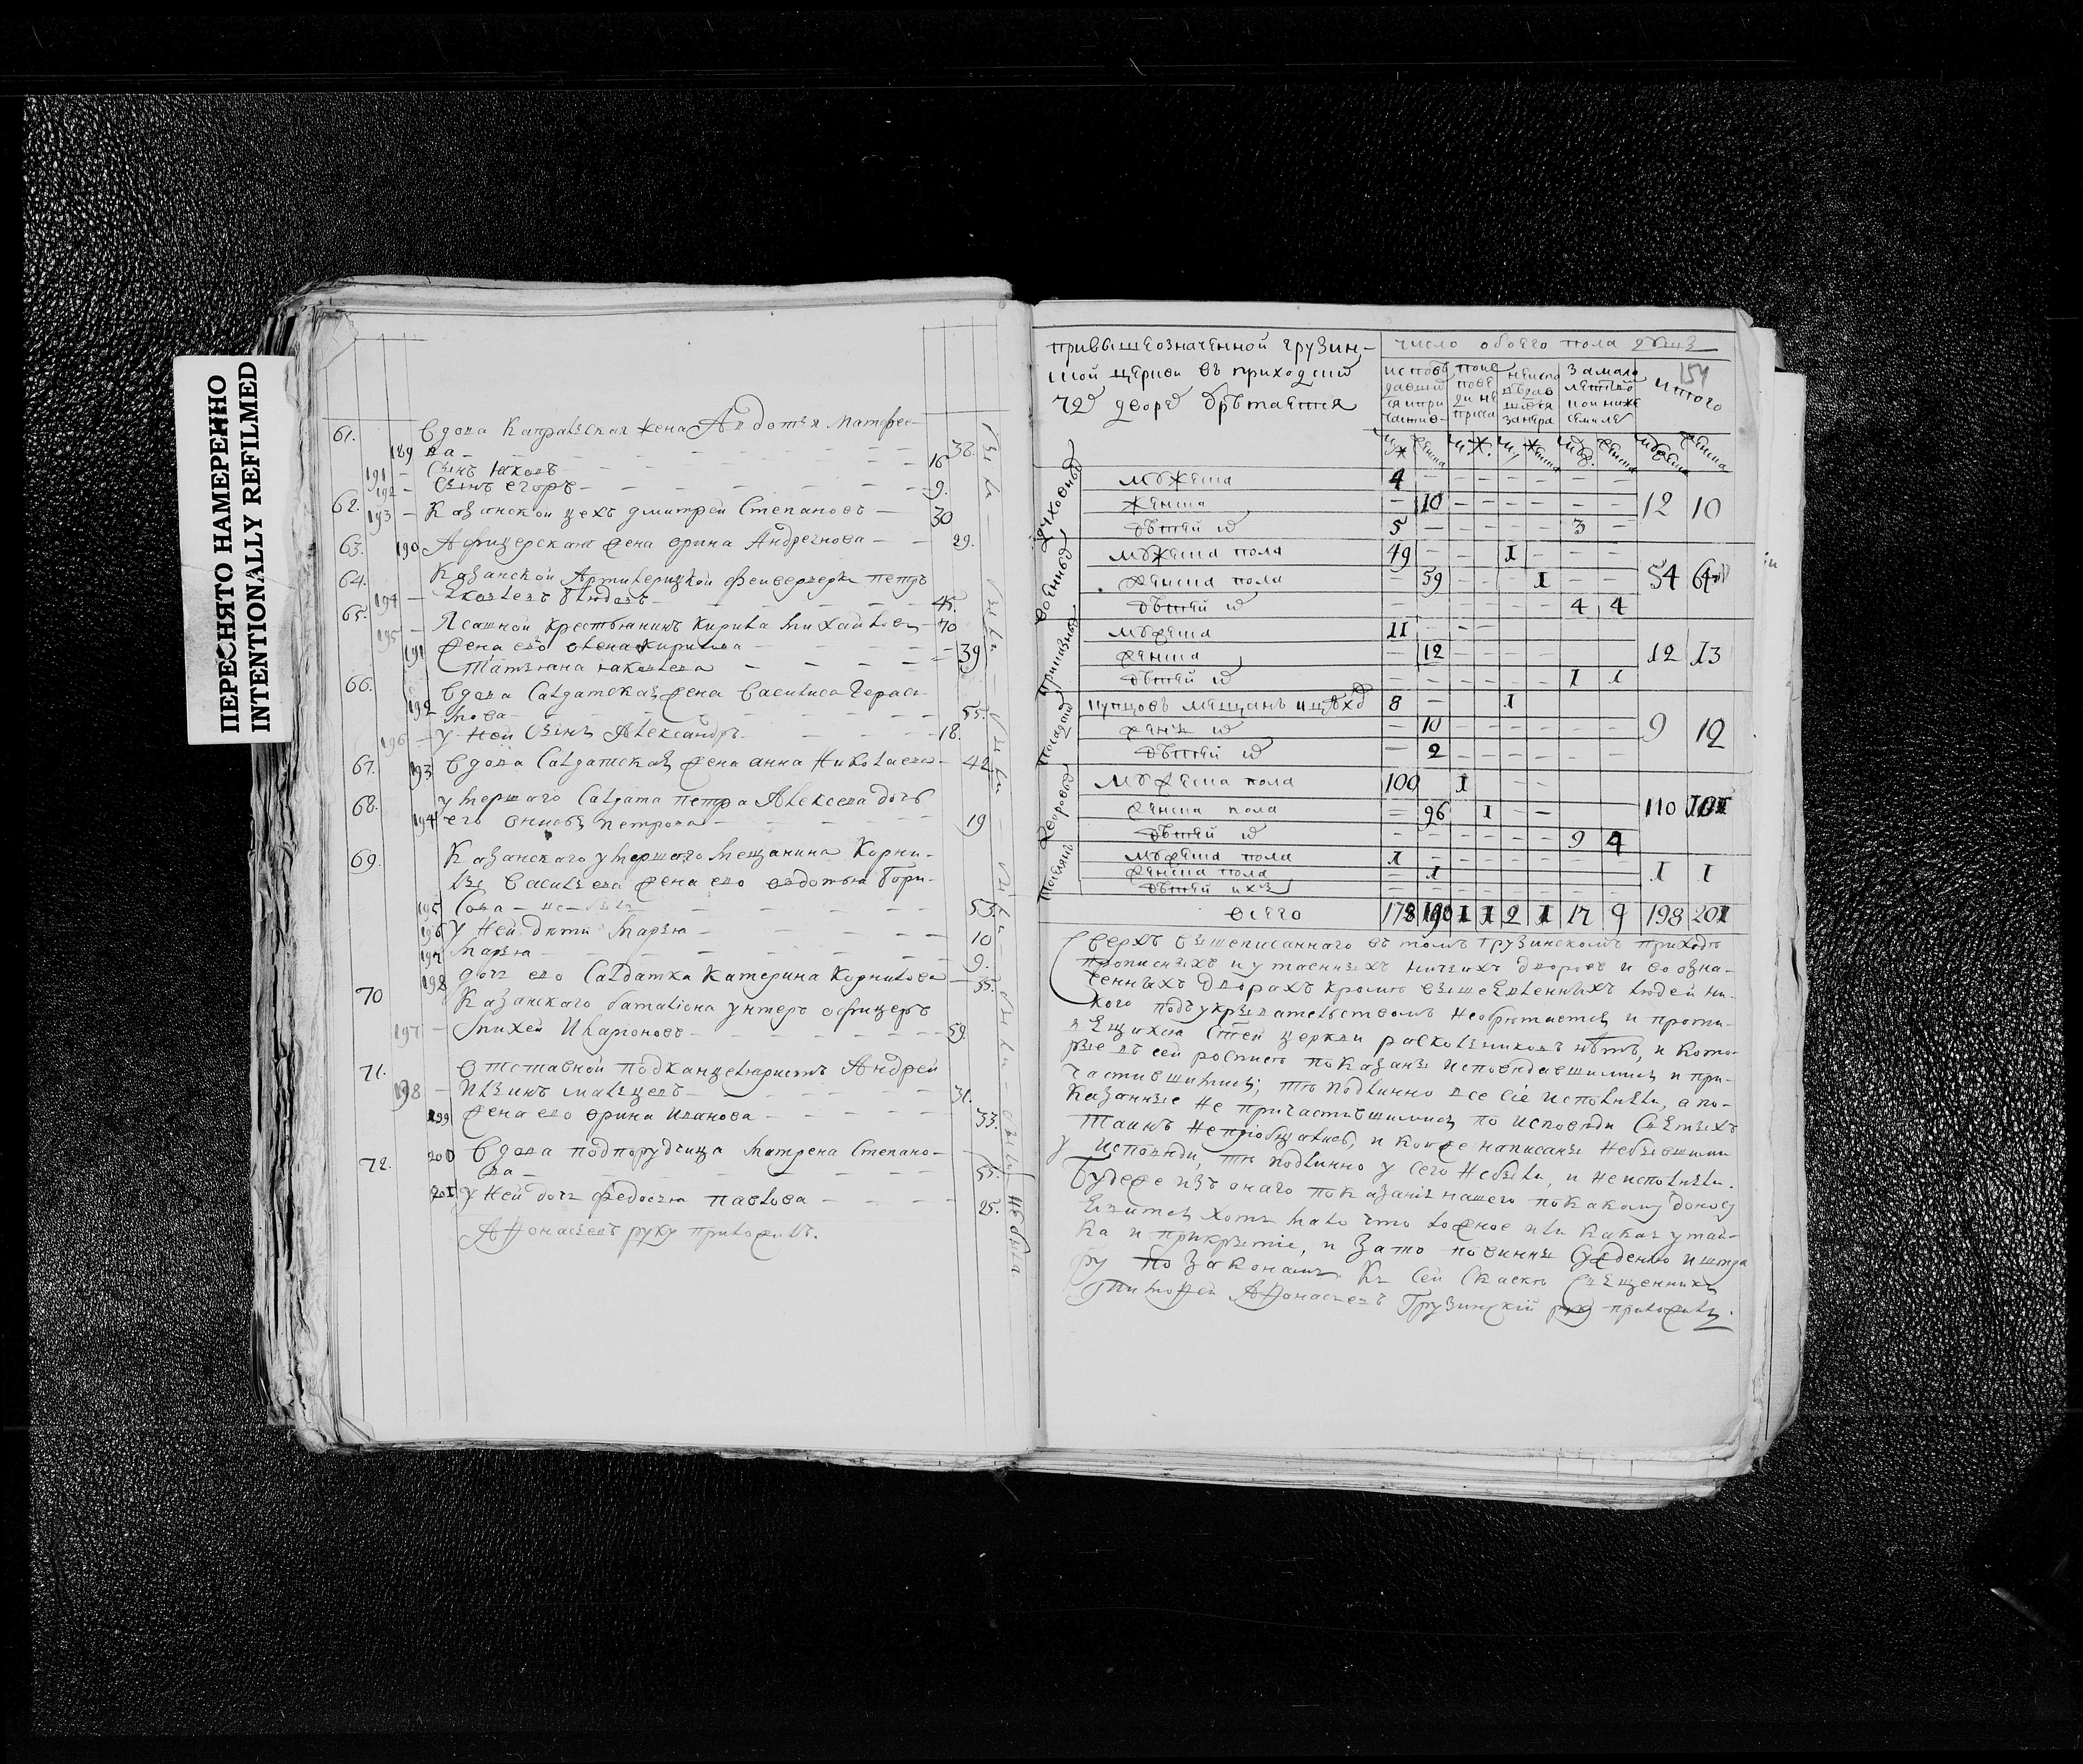 ПЕРЕСНЯТО НАМЕРЕННО
INTENTIONALLY REFILMED
61. вдова Капральская жена Авдотья Матфее-
189 ва — 36.
191 — Сынъ Яковъ — 16
192 — Сынъ Егоръ — 9.
62. 193 — Казанской цехъ Дмитрей Степановъ — 30
63. 190 Афицерская жена Ирина Андреянова — 29.
64. Казанской Артилерицкой Фейверверкъ петръ
194 — 45.
65. 195 — Ясашной крестьянинъ Кирила Михайловъ — 70
191 жена его Кирилова — 39
Татьяна Яковлева —
66. вдова Салдатская жена Василиса Гераси-
192 мова — 55.
196 — у ней Сынъ Александръ — 18.
67. 193 вдова Салдатская жена Анна Николаева — 42
68. умершаго Салдата петра Алексеева дочь
194 его Петрова — 19
69. Казанскаго умершаго мещанина Корни-
лы Васильева жена его Овдотья Бори-
195 сова — 53.
196 у ней дети Марья — 10
197 Марья — 9.
198 дочь его Салдатка Катерина Корнилова — 35.
70 Казанскаго баталиона унтеръ офицеръ
197 — Михей Иларионовъ — 59.
71. Отставной подканцеляристъ Андрей
198 — Ильинъ — 31.
199 жена его Орина Иванова — 33.
72. 200 вдова подпорудчица Матрена Степано-
ва — 55.
201 у ней дочь Федосья Павлова — 25.
Афонасьевъ руку приложилъ.
были — были — были — не была
при вышеозначенной грузин-
ской церкви въ приходский
72 дворе обретается
число обоего пола душъ
154
исповедавшияся и при
итого
Духовныя
мужеска 4 — — — — — — —
женска — 10 — — — — — — 12 10
детей их 5 — — — — — 3 —
Военныя
мужеска пола 49 — — — 1 — — —
женска пола — 59 — — — 1 — — 54 64
детей их — — — — — — 4 4
Приказныя
мужеска 11 — — —
женска — 12 — — — — — — 12 13
детей их — — — — — — 1 1
Посадския
купцовъ мещанъ и цех 8 — 1
женъ их — 10 — — — — 9 12
детей их — 2 — — — —
Дворовыя
мужеска пола 100 1 — —
женска пола — 96 1 — — 110 101
детей их — — — — — — 9 4
Поселянъ
мужеска пола 1 — — — — — — —
женска пола — 1 — — — — — — 1 1
детей ихъ — — — — — — — —
всего 178 190 1 1 2 1 17 9 198 201
Сверхъ вышеписаннаго въ томъ Грузинскомъ приходе
прописныхъ и утаенныхъ ничьихъ дворовъ и во озна-
ченныхъ дворахъ кроме вышеявленныхъ людей ни-
кого подъ укрывательствомъ необретается и проти-
вящихся Стей церкви расколниковъ нетъ, и кото-
рые въ сей росписе показаны исповедавшимися и при-
частившимися; те подлинно все сіе исполнили, а по-
казанные не причастившимися по исповеди Святыхъ
Таинъ непріобщались, и кои же написаны небывшими
у исповеди, те подлинно у сего небыли, и неисполнили.
Буде же изъ онаго показанія нашего по какому доносу
явится хотя мало что ложное или какая утай-
ка и прикрытіе, и за то повинны суждению и штра
фу по законамъ. Къ сей сказке Священникъ
Тимофей Афонасьевъ Грузинскій руку приложилъ.